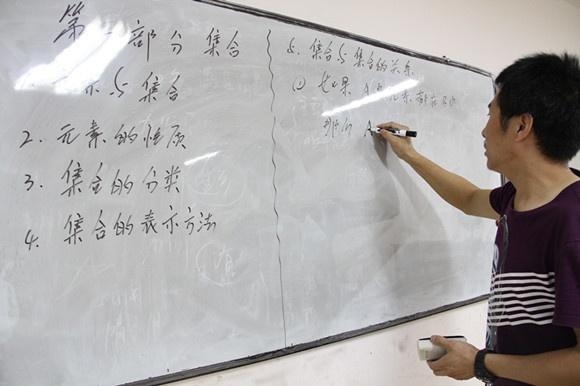 第一部分 集合
素与集合
2. 元素的性质
3. 集合的分类
4. 集合的表示方法
5. 集合与集合的关系
① 如果 A 素都在
则 A